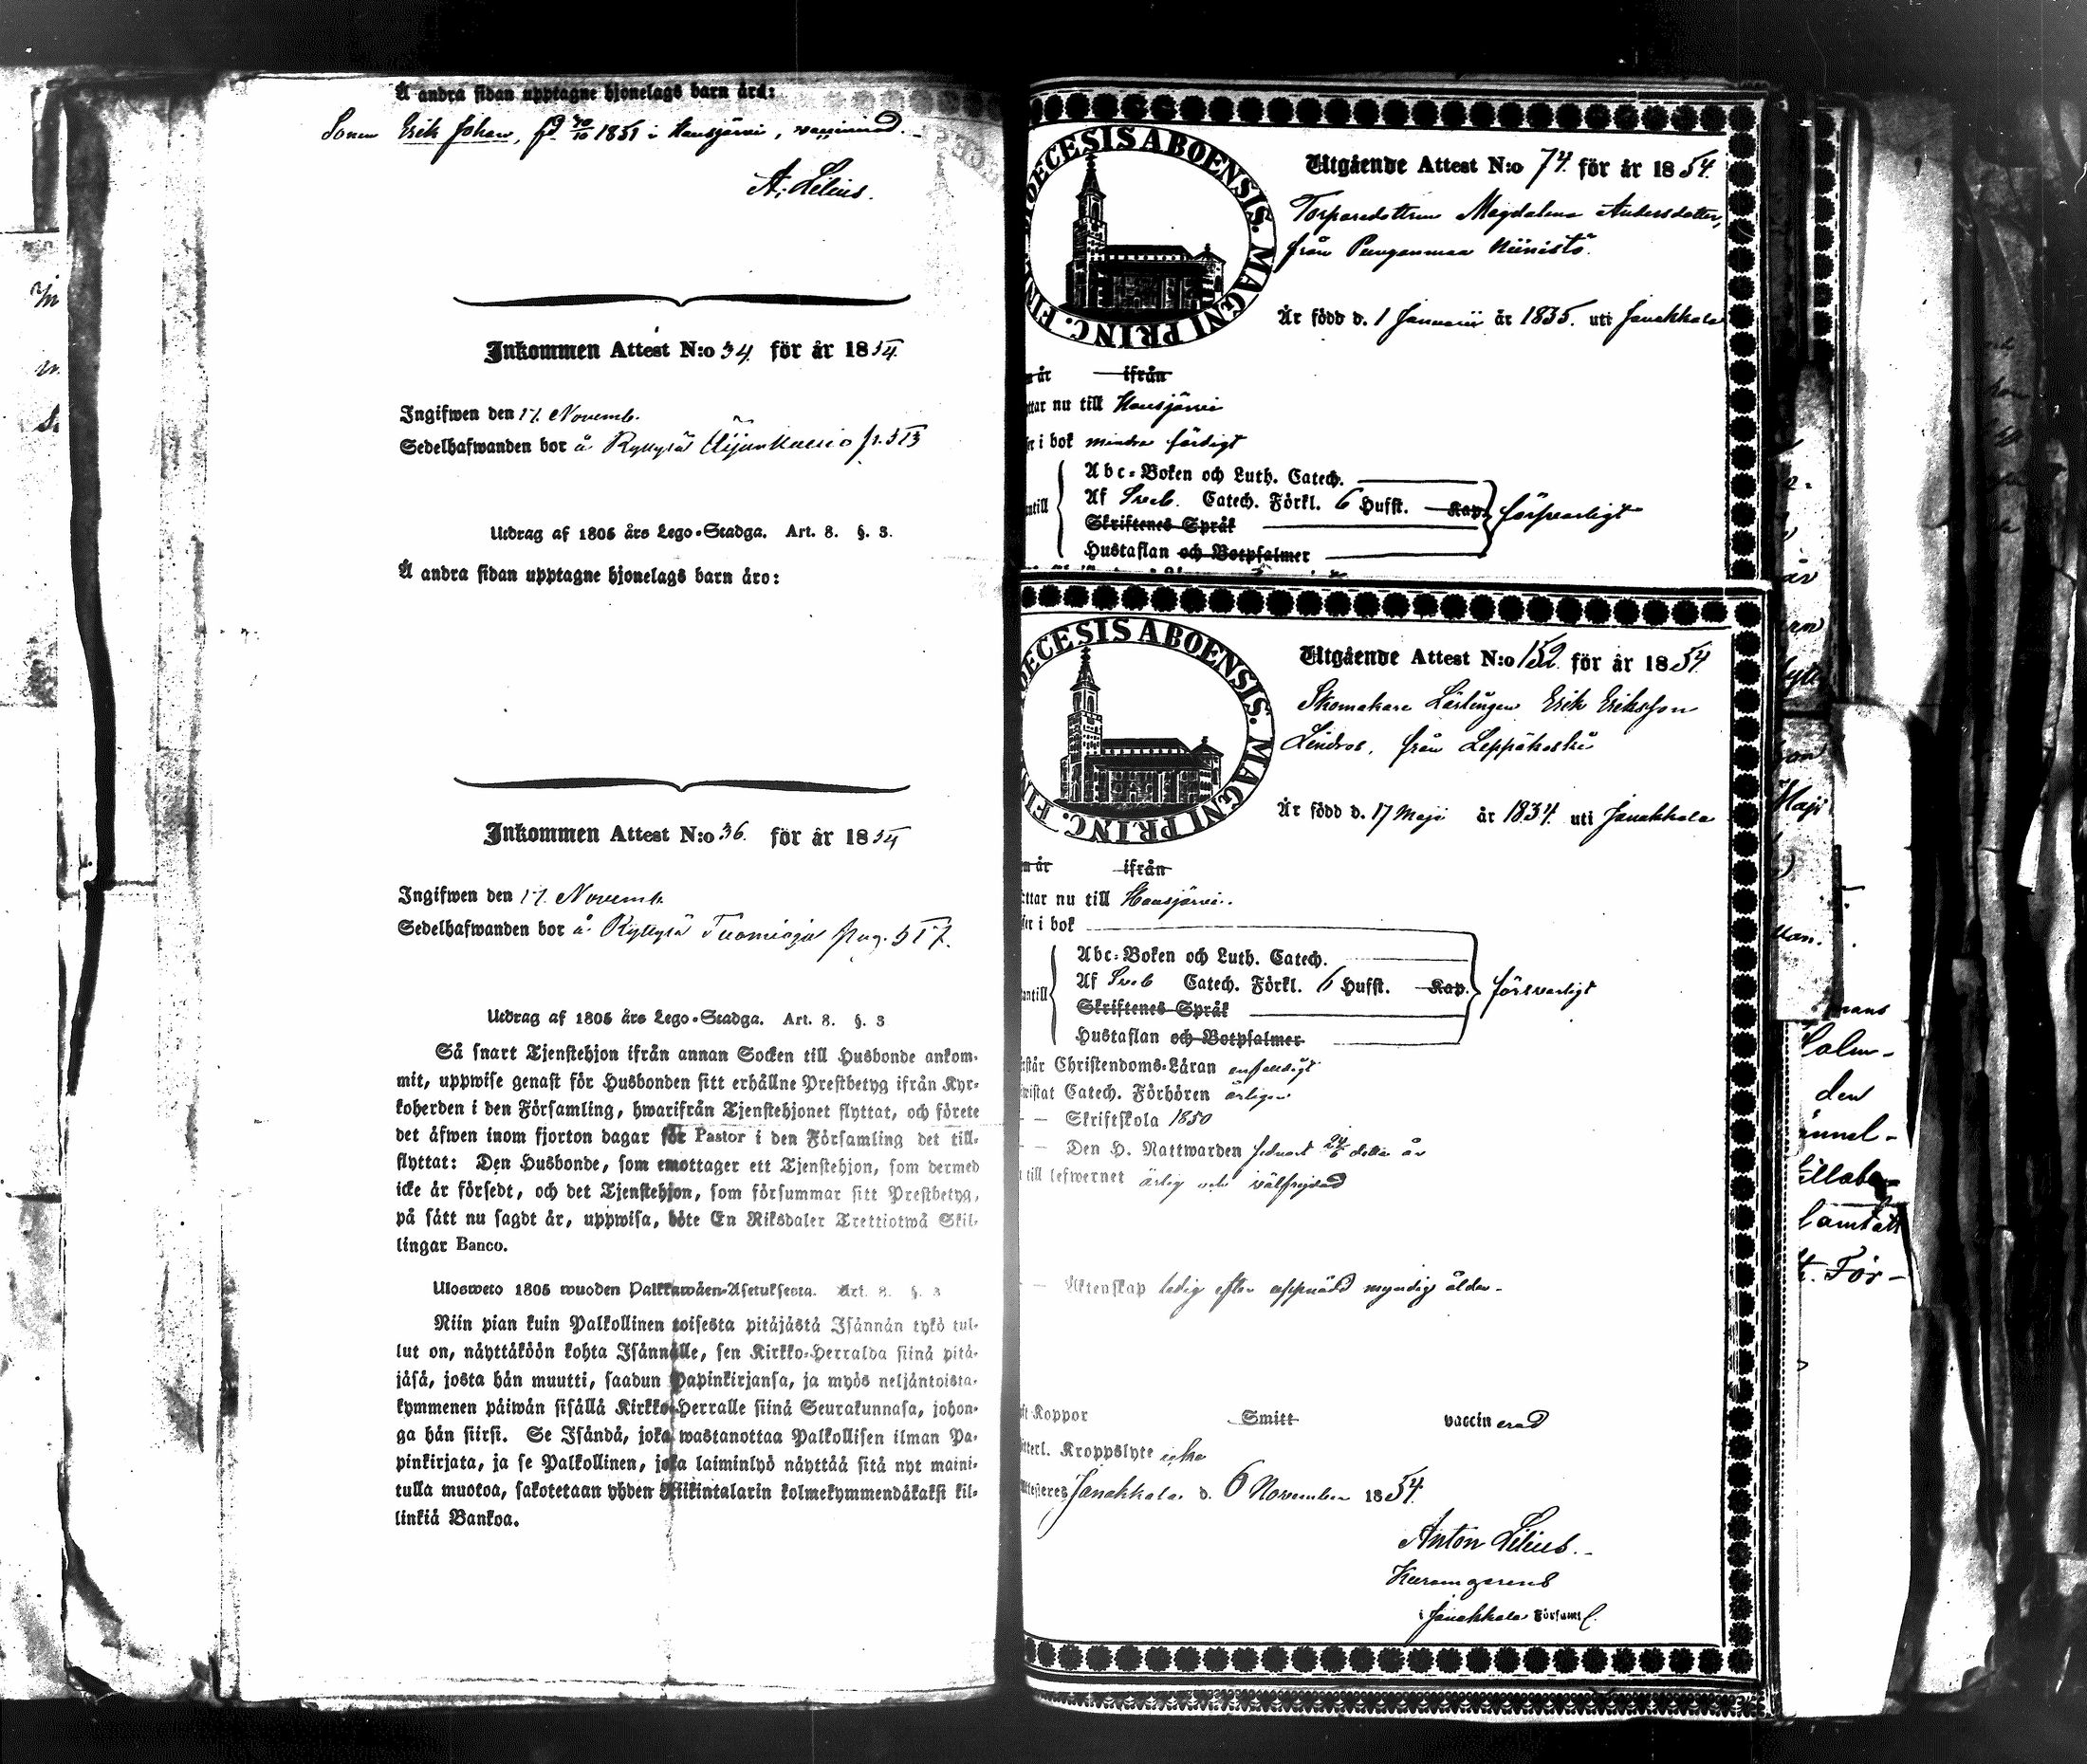 Å andra sidan upptagne hjonelags barn äro:
Sonen Erik Johan, fd 1851 i Hausjärvi, vaccinerad.
A. Lilius.
Inkommen Attest N:o 34. för år 1854.
Ingifwen den 17. Novemb.
Sedelhafwanden bor å Ryttylä
Utdrag af 1805 års Lego-Stadga. Art. 8. §. 3.
Å andra sidan upptagne hjonelags barn äro:
Inkommen Attest N:o 36. för år 1854
Ingifwen den 17. Novemb.
Sedelhafwanden bor å Ryttylä Tuomioja pag. 517.
Utdrag af 1805 års Lego-Stadga. Art. 8. §. 3
Så snart Tjenstehjon ifrån annan Socken till Husbonde ankom-
mit, uppwise genast för Husbonden sitt erhållne Prestbetyg ifrån Kyr-
koherden i den Församling, hwarifrån Tjenstehjonet flyttat, och förete
det äfwen inom fjorton dagar för Pastor i den Församling det till-
flyttat: Den Husbonde, som emottager ett Tjenstehjon, som dermed
icke är försedt, och det Tjenstehjon, som försummar sitt Prestbetyg,
på sätt nu sagdt är, uppwisa, böte En Riksdaler Trettiotwå Skil-
lingar Banco.
Ulosweto 1805 wuoden Palkkawäen-Asetuksesta. Art. 8. §. 3
Niin pian kuin Palkollinen toisesta pitäjästä Isännän tykö tul-
lut on, näyttäköön kohta Isännälle, sen Kirkko-Herralda siinä pitä-
jäsä, josta hän muutti, saadun Papinkirjansa, ja myös neljäntoista-
kymmenen päiwän sisällä Kirkko-Herralle siinä Seurakunnasa, johon-
ga hän siirsi. Se Isändä, joka wastanottaa Palkollisen ilman Pa-
pinkirjata, ja se Palkollinen, joka laiminlyö näyttää sitä nyt maini-
tulla muotoa, sakotetaan yhden Riikintalarin kolmekymmendäkaksi kil-
linkiä Bankoa.
DIOECESIS ABOENSIS. MAGNI PRINC. FIN
Utgående Attest N:o 74. för år 1854.
Torparedottren Magdalena Andersdotter,
från Punganmaa Niinistö.
Är född d. 1 Januarii år 1835. uti Janakkala
år ifrån
ttar nu till Hausjärvi
i bok mindre färdigt
Abc-Boken och Luth. Catech.
Af Sveb. Catech. Förkl. 6 Hufst. Kap. försvarligt
Skriftenes Språk
Hustaflan och Botpsalmer
DIOECESIS ABOENSIS. MAGNI PRINC. FIN
Utgående Attest N:o 152. för år 1854.
Skomakare Lärlingen Erik Eriksson
Lindros, från Leppäkoski
Är född d. 17 Maji år 1834. uti Janakkala
år ifrån
ttar nu till Hausjärvi.
i bok
Abc-Boken och Luth. Catech.
Af Sveb Catech. Förkl. 6 Hufst. Kap. försvarligt
Skriftenes Språk
Hustaflan och Botpsalmer
står Christendoms-Läran enfaldigt
wistat Catech. Förhören årligen
— Skriftskola 1850
— Den H. Nattwarden sednast detta år
till lefwernet ärlig och välfrejdad
— Äktenskap ledig efter uppnådd myndig ålder.
Koppor Smitt vaccinerad
tterl. Kroppslyte icke
Attesteres Janakkala d. 6 November 1854.
Anton Lilius.
i Janakkala Församl.
Maji
Holm-
den
t. För-